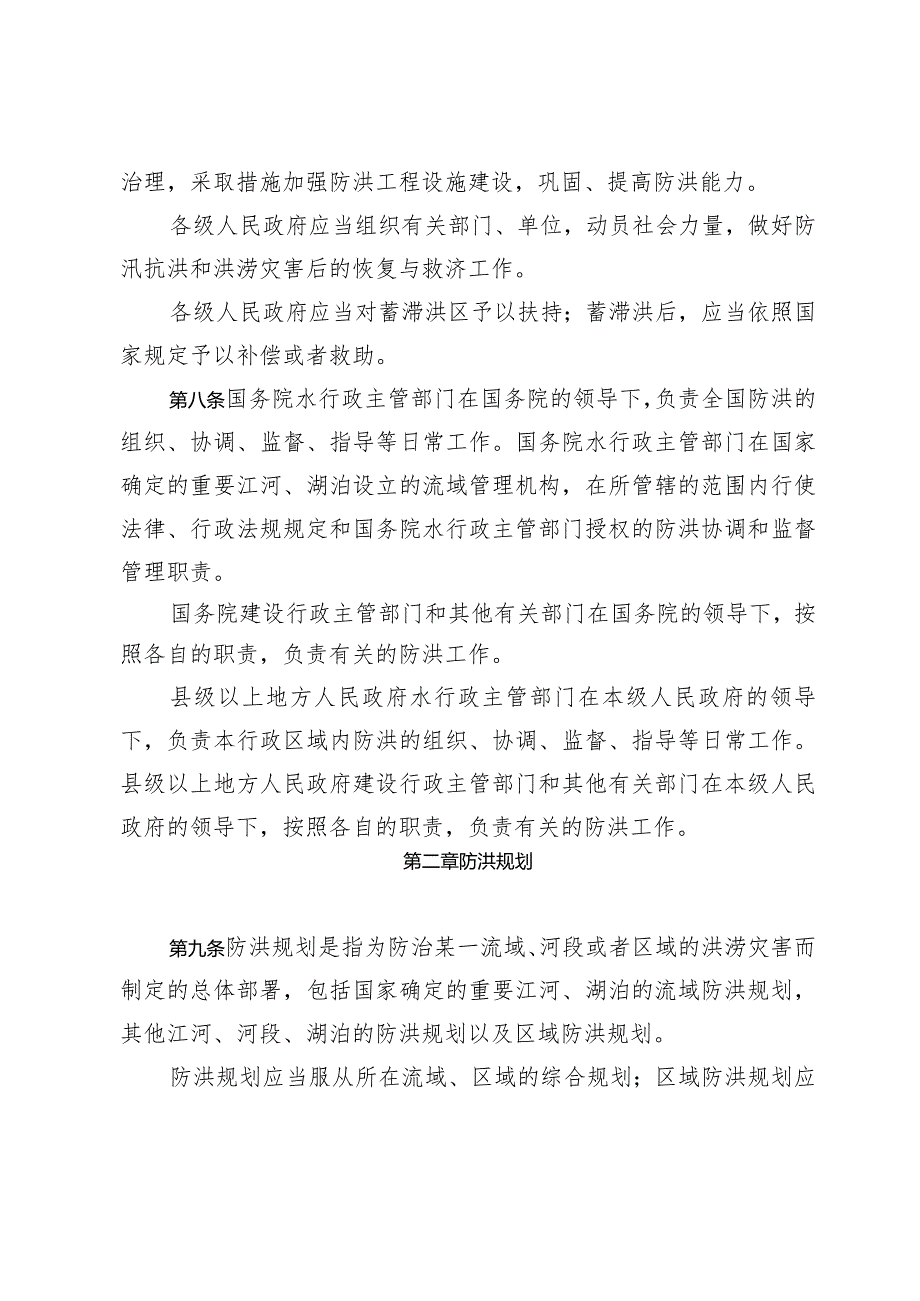 治理，采取措施加强防洪工程设施建设，巩固、提高防洪能力。
各级人民政府应当组织有关部门、单位，动员社会力量，做好防
汛抗洪和洪涝灾害后的恢复与救济工作。
各级人民政府应当对蓄滞洪区予以扶持；蓄滞洪后，应当依照国
家规定予以补偿或者救助。
第八条国务院水行政主管部门在国务院的领导下，负责全国防洪的
组织、协调、监督、指导等日常工作。国务院水行政主管部门在国家
确定的重要江河、湖泊设立的流域管理机构，在所管辖的范围内行使
法律、行政法规规定和国务院水行政主管部门授权的防洪协调和监督
管理职责。
国务院建设行政主管部门和其他有关部门在国务院的领导下，按
照各自的职责，负责有关的防洪工作。
县级以上地方人民政府水行政主管部门在本级人民政府的领导
下，负责本行政区域内防洪的组织、协调、监督、指导等日常工作。
县级以上地方人民政府建设行政主管部门和其他有关部门在本级人民
政府的领导下，按照各自的职责，负责有关的防洪工作。
第二章防洪规划
第九条防洪规划是指为防治某一流域、河段或者区域的洪涝灾害而
制定的总体部署，包括国家确定的重要江河、湖泊的流域防洪规划，
其他江河、河段、湖泊的防洪规划以及区域防洪规划。
防洪规划应当服从所在流域、区域的综合规划；区域防洪规划应